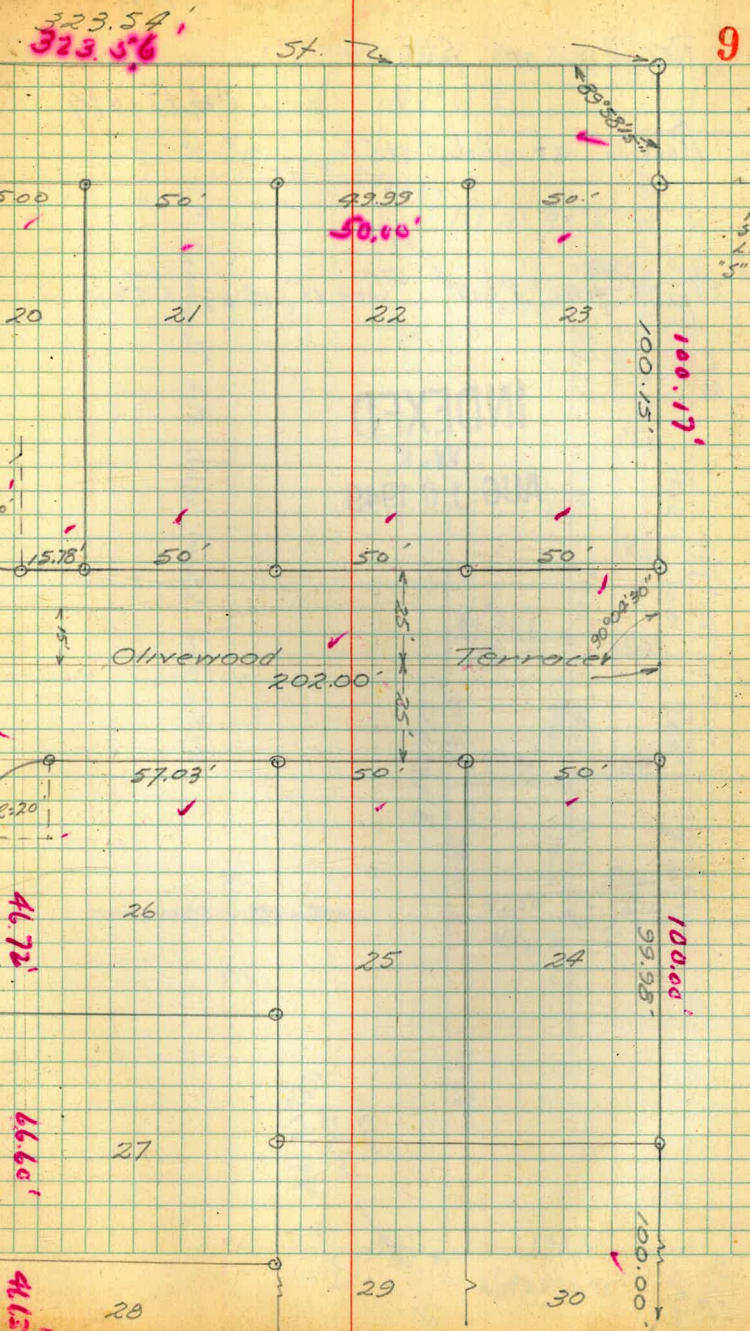 323.54'
323.56
St.
9
89°58'15"
5.00
50'
49.99
50.'
50.00'
20
21
22
23
100.15'
100.17'
INDEXED
15.78'
50'
50'
50'
90°02'30"
15'
25'
Olivewood
Terrace
202.00'
25'
57.03'
50'
50'
=20'
46.72'
26
25
24
99.98'
100.00'
66.60'
27
100.00'
28
29
30